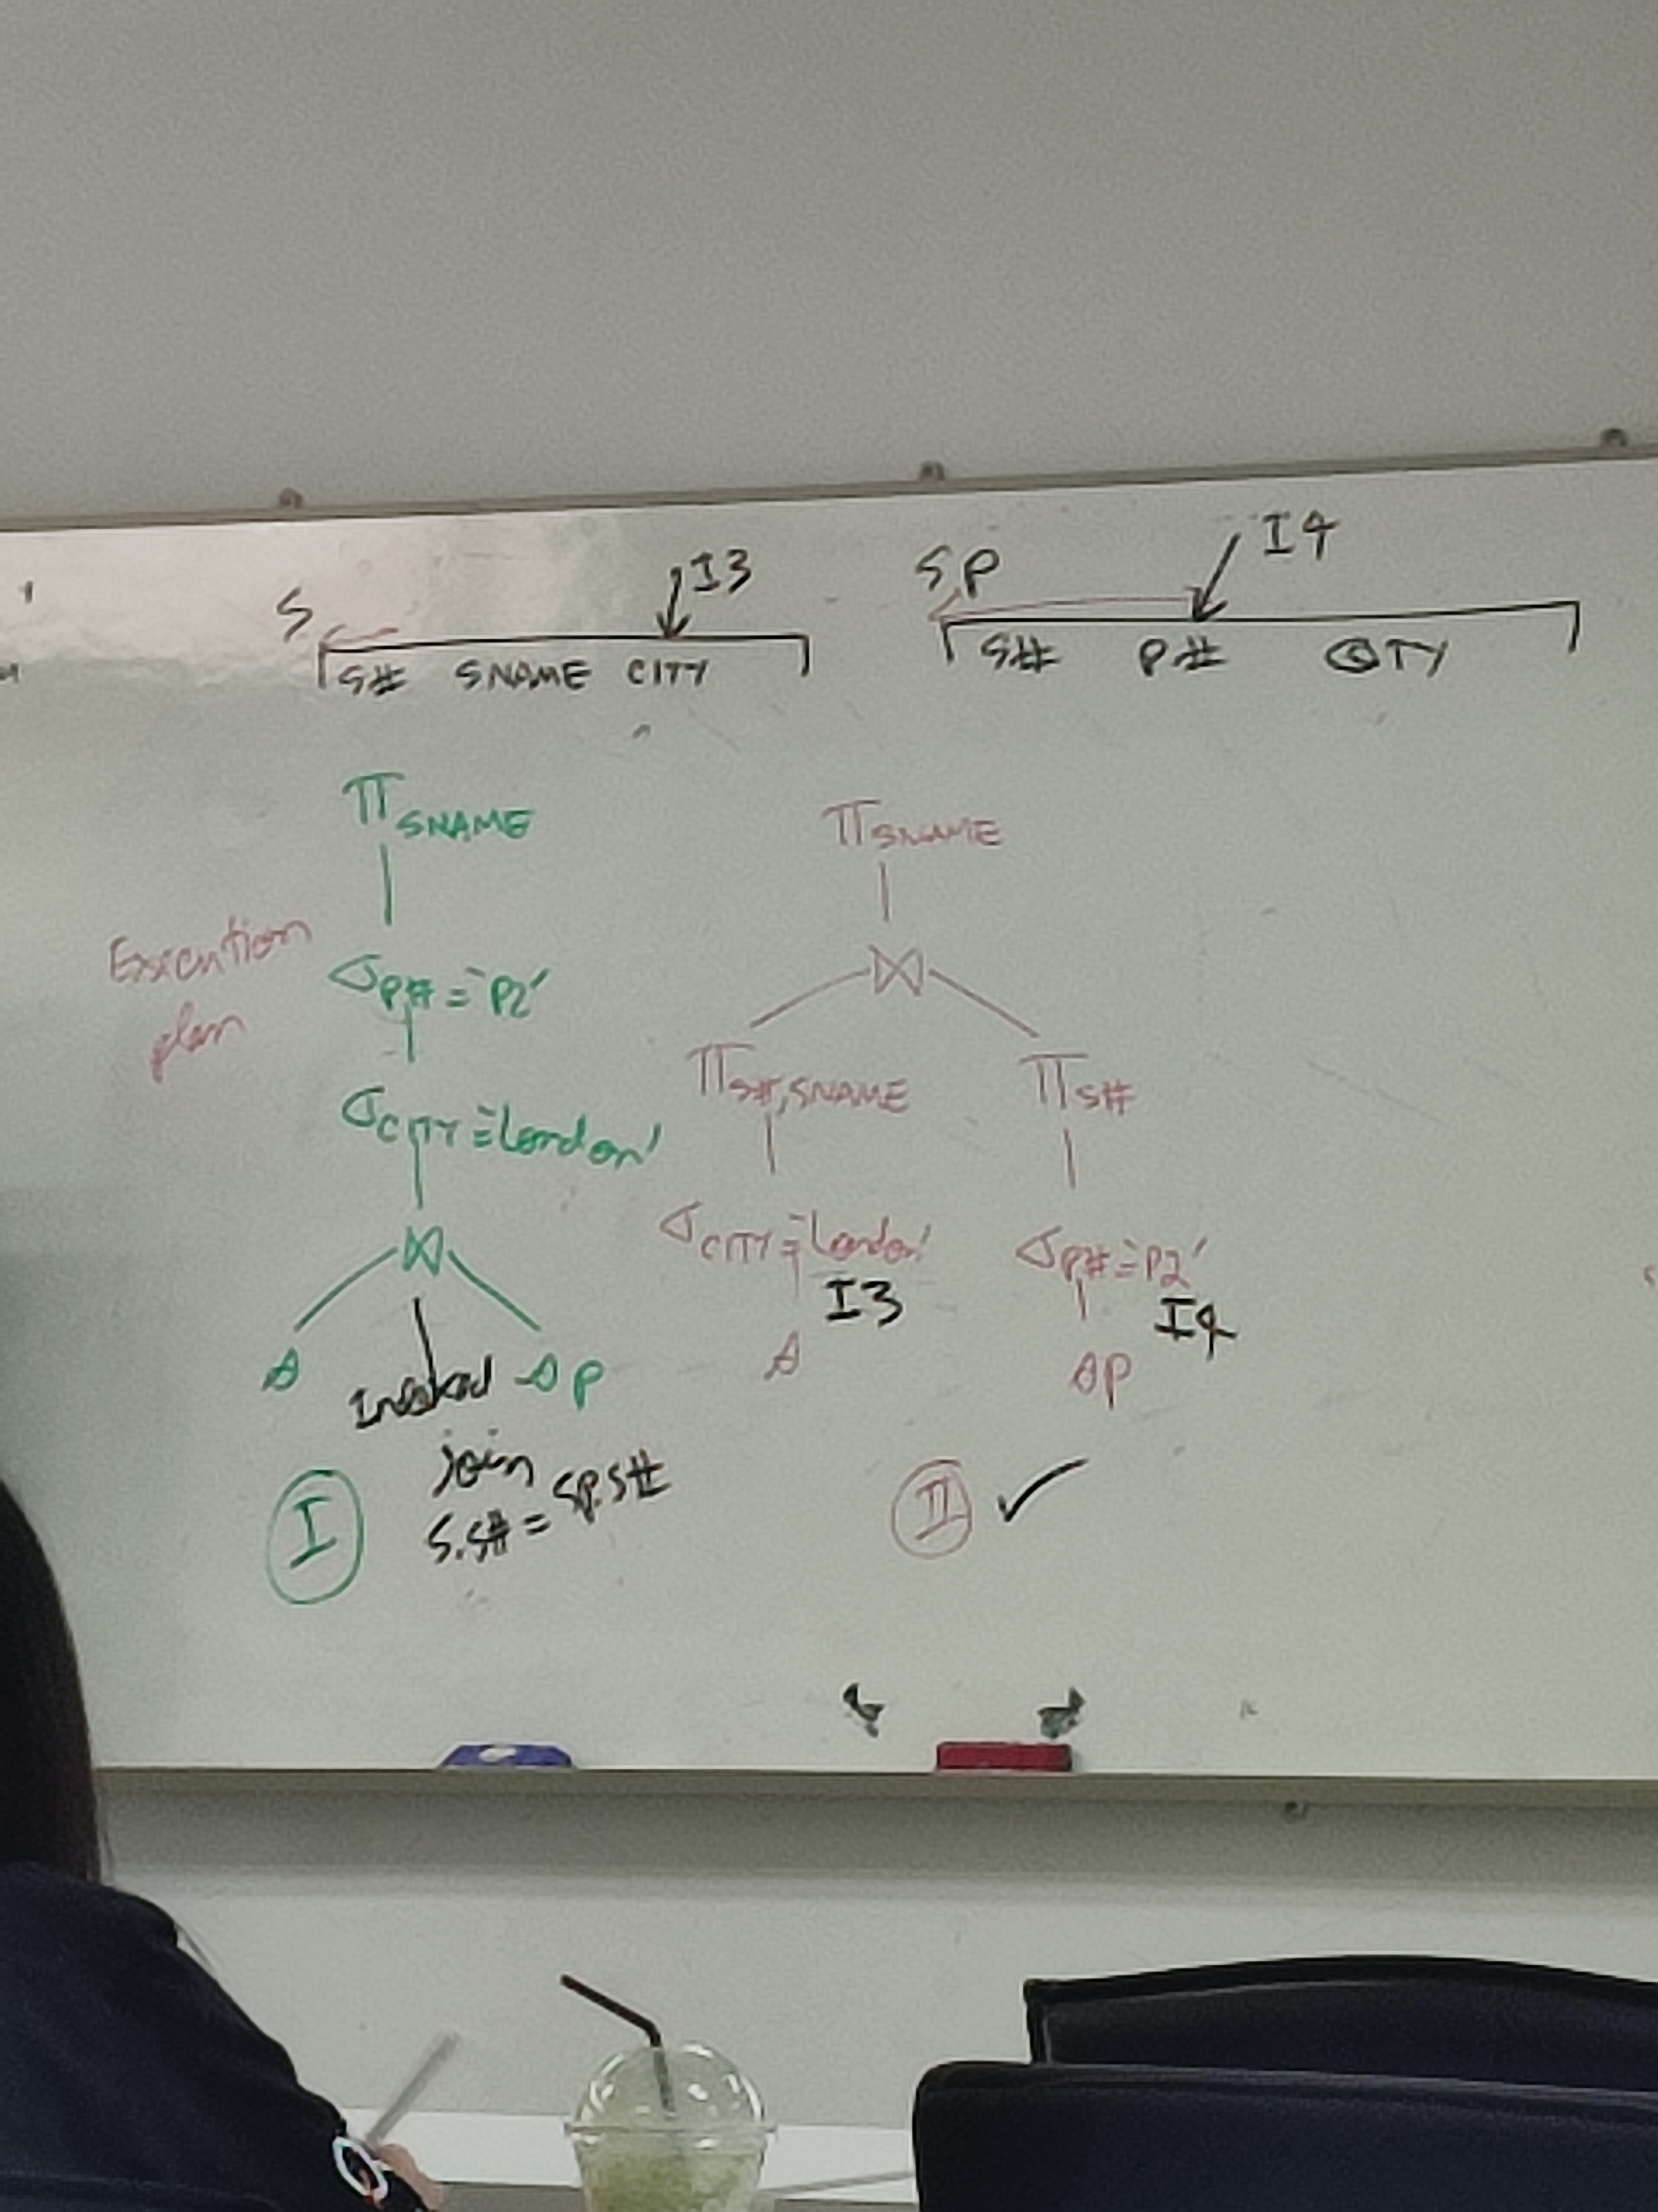 S
I3
S# SNAME CITY
SP
I4
S# P# QTY
Execution
plan
π SNAME
σ P# = 'P2'
σ CITY = 'London'
⋈
S
SP
join
S.S# = SP.S#
I
π SNAME
⋈
π S#, SNAME
π S#
σ CITY = 'London'
I3
σ P# = 'P2'
I4
S
SP
II ✓